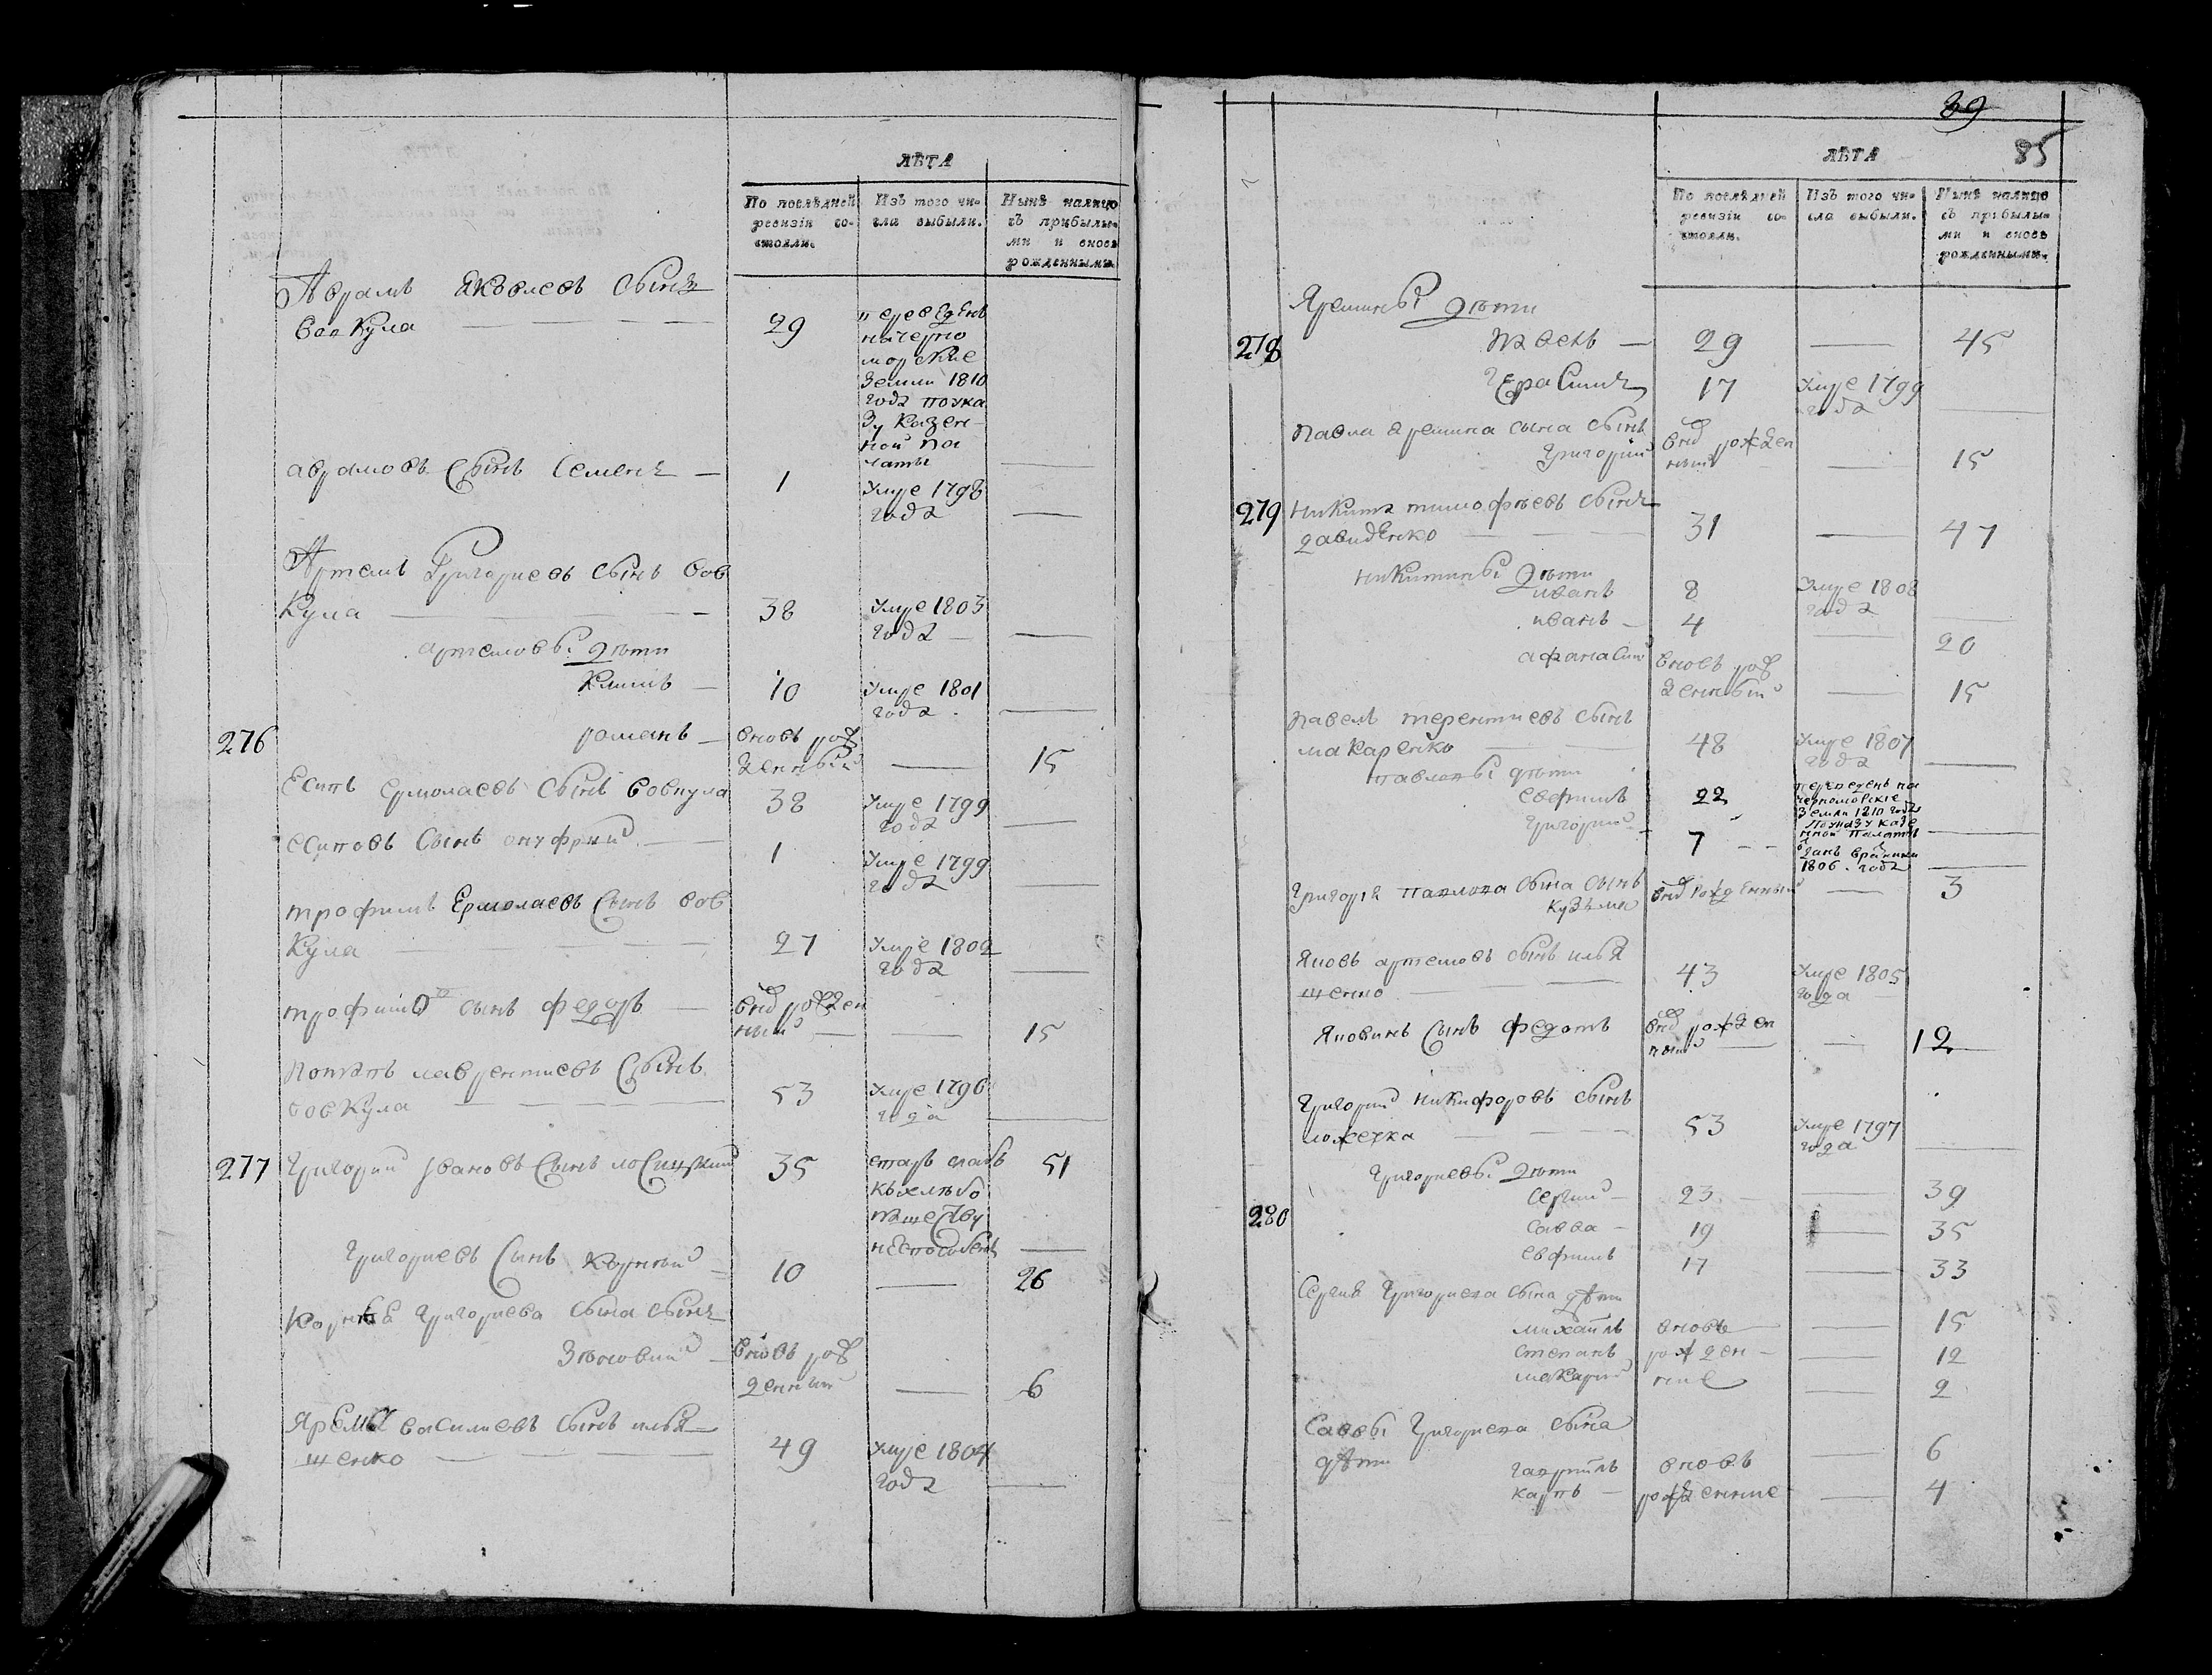 ЛѢТА
По послѣдней
ревизіи со-
стояли.
Изъ того чи-
сла выбыли.
Нынѣ налицо
съ прибылы-
ми и вновь
рожденными.
Аврамъ Яковлевъ сынъ
Вовкула 29
переведенъ
на черно
морские
земли 1810
года по ука
зу казен-
ной па
латы
аврамовъ сынъ Семенъ 1 умре 1798
года
Артемъ Григориевъ сынъ Вов
Кула 38 умре 1803
года
артемовы дѣти
Климъ 10 умре 1801
года
276 романъ вновь рож
денный 15
Есипъ ермолаевъ сынъ вовкула 38 умре 1799
года
есиповъ сынъ онуфрий 1 умре 1799
года
трофимъ Ермолаевъ сынъ вов
Кула 27 умре 1802
года
трофимовъ сынъ федоръ внов рожден
ный 15
Потапъ лаврентиевъ сынъ
вовкула 53 умре 1796
года
277 Григорий Ивановъ сынъ лосицкий 35 старъ слабъ 51
къ хлѣбо
пашеству
неспособенъ
Григориевъ сынъ Корний 10 26
Корнѣя Григориева сына сынъ
Зѣновий вновь рож
денный 6
Ярема василиевъ сынъ илья
щенко 49 умре 1804
года
39
85
ЛѢТА
По послѣдней
ревизіи со-
стояли.
Изъ того чи-
сла выбыли.
Нынѣ налицо
съ прибылы-
ми и вновь
рожденными.
Яремины дѣти
278 Павелъ 29 45
Герасимъ 17 умре 1799
года
Павла яремина сына сынъ
Григорий внов рожден
ный 15
279 Никита тимофѣевъ сынъ
давиденко 31 47
никитины дѣти
иванъ 8 умре 1808
года
иванъ 4 20
афанасий вновь рож
денный 15
Павелъ терентиевъ сынъ
макаренко 48 умре 1807
года
павловы дѣти
евфимъ 22
переведенъ на
черноморские
земли 1810 года
по указу казе
нной палаты
Григорий 7
данъ в рекруты
1806 года
Григория павлова сына сынъ
кузьма внов рожденный 3
Яковъ артемовъ сынъ илья
щенко 43 умре 1805
года
Яковинъ сынъ федотъ внов рожден
ный 12
Григорий никифоровъ сынъ
ложечка 53 умре 1797
года
Григориевы дѣти
Сергий 23 39
280 Савва 19 35
евфимъ 17 33
Сергия Григориева сына дѣти
михайлъ вновь 15
степанъ рожден 12
макарий ние 2
Саввы Григориева сына
дѣти
гаврилъ вновь 6
карпъ рожденние 4